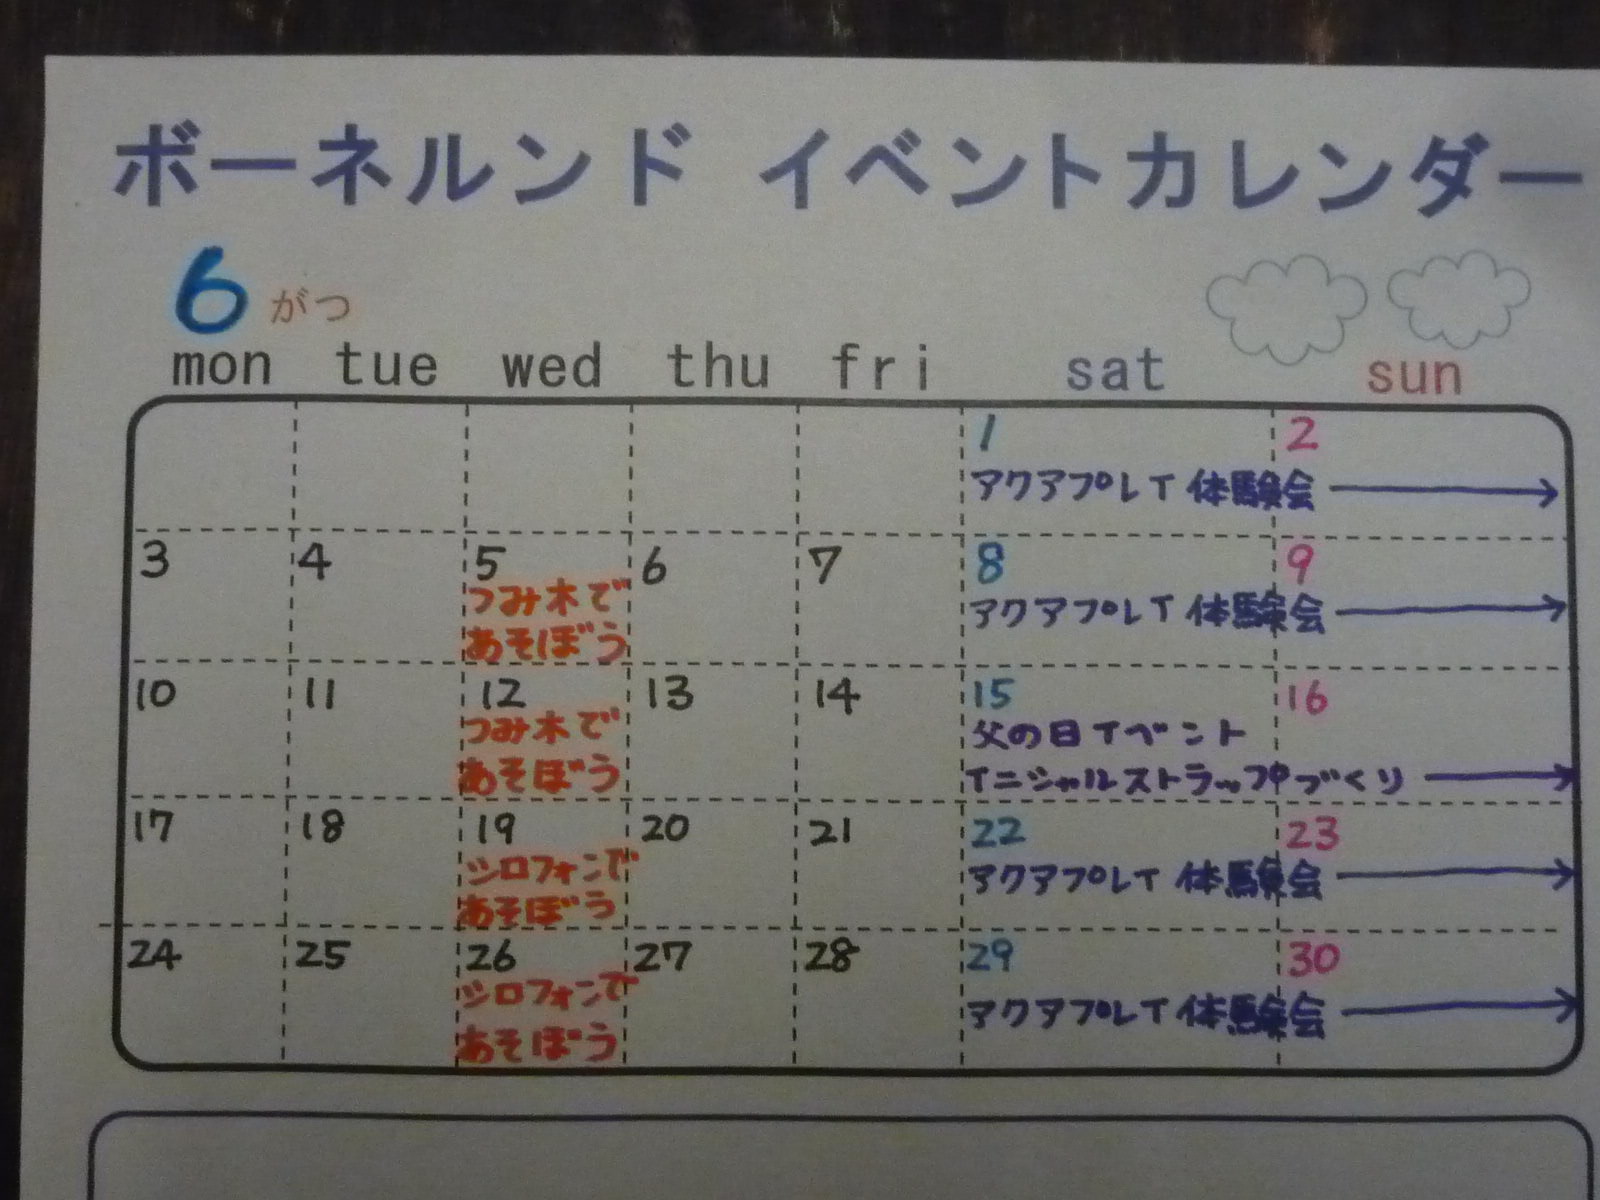 ボーネルンド イベントカレンダー
6 がつ
mon tue wed thu fri sat sun
1 2
アクアプレイ 体験会
3 4 5 6 7 8 9
つみ木で
あそぼう
アクアプレイ 体験会
10 11 12 13 14 15 16
つみ木で
あそぼう
父の日イベント
イニシャルストラップづくり
17 18 19 20 21 22 23
シロフォンで
あそぼう
アクアプレイ 体験会
24 25 26 27 28 29 30
シロフォンで
あそぼう
アクアプレイ 体験会